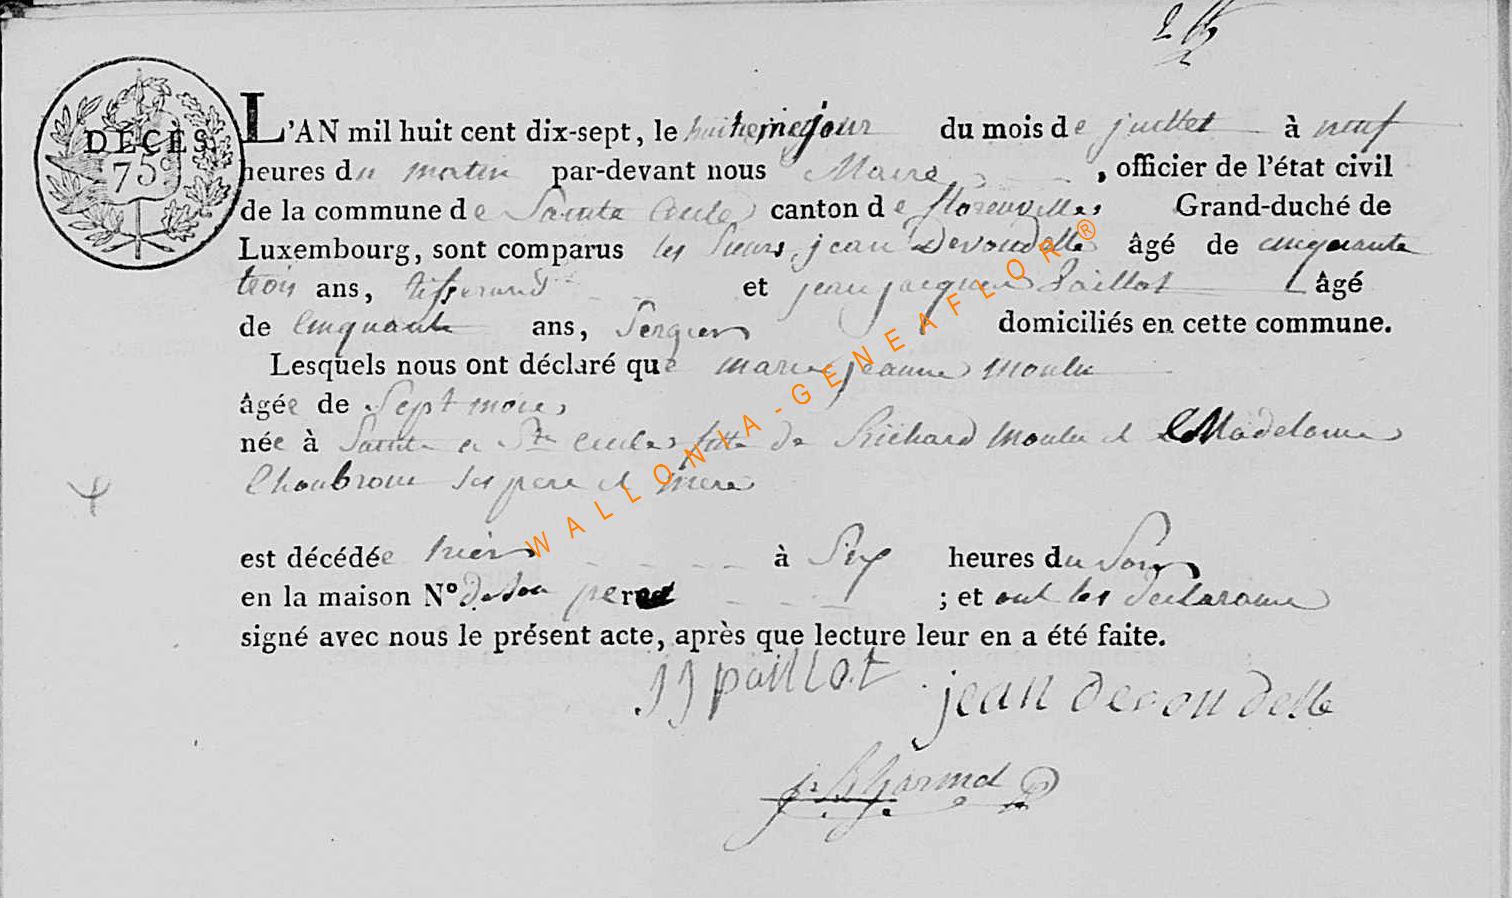 DÉCÈS.
75c
L'AN mil huit cent dix-sept, le huitieme jour du mois de juillet à neuf
heures du matin par-devant nous Maire, officier de l'état civil
de la commune de Sainte Cecile canton de florenville Grand-duché de
Luxembourg, sont comparus les Sieurs jean Devoudelle âgé de cinquante
trois ans, tisserand et jean jacques Paillot âgé
de cinquante ans, Sergier domiciliés en cette commune.
Lesquels nous ont déclaré que marie jeanne moulu
âgée de Sept mois
née à Sainte Ste Cecile fille de Richard moulu et Madelaine
ses pere et mere
est décédée hier à Six heures du Soir
en la maison N° de son pere ; et ont les declarants
signé avec nous le présent acte, après que lecture leur en a été faite.
jj paillot jean devoudelle
WALLONIA-GENEAFLOR®